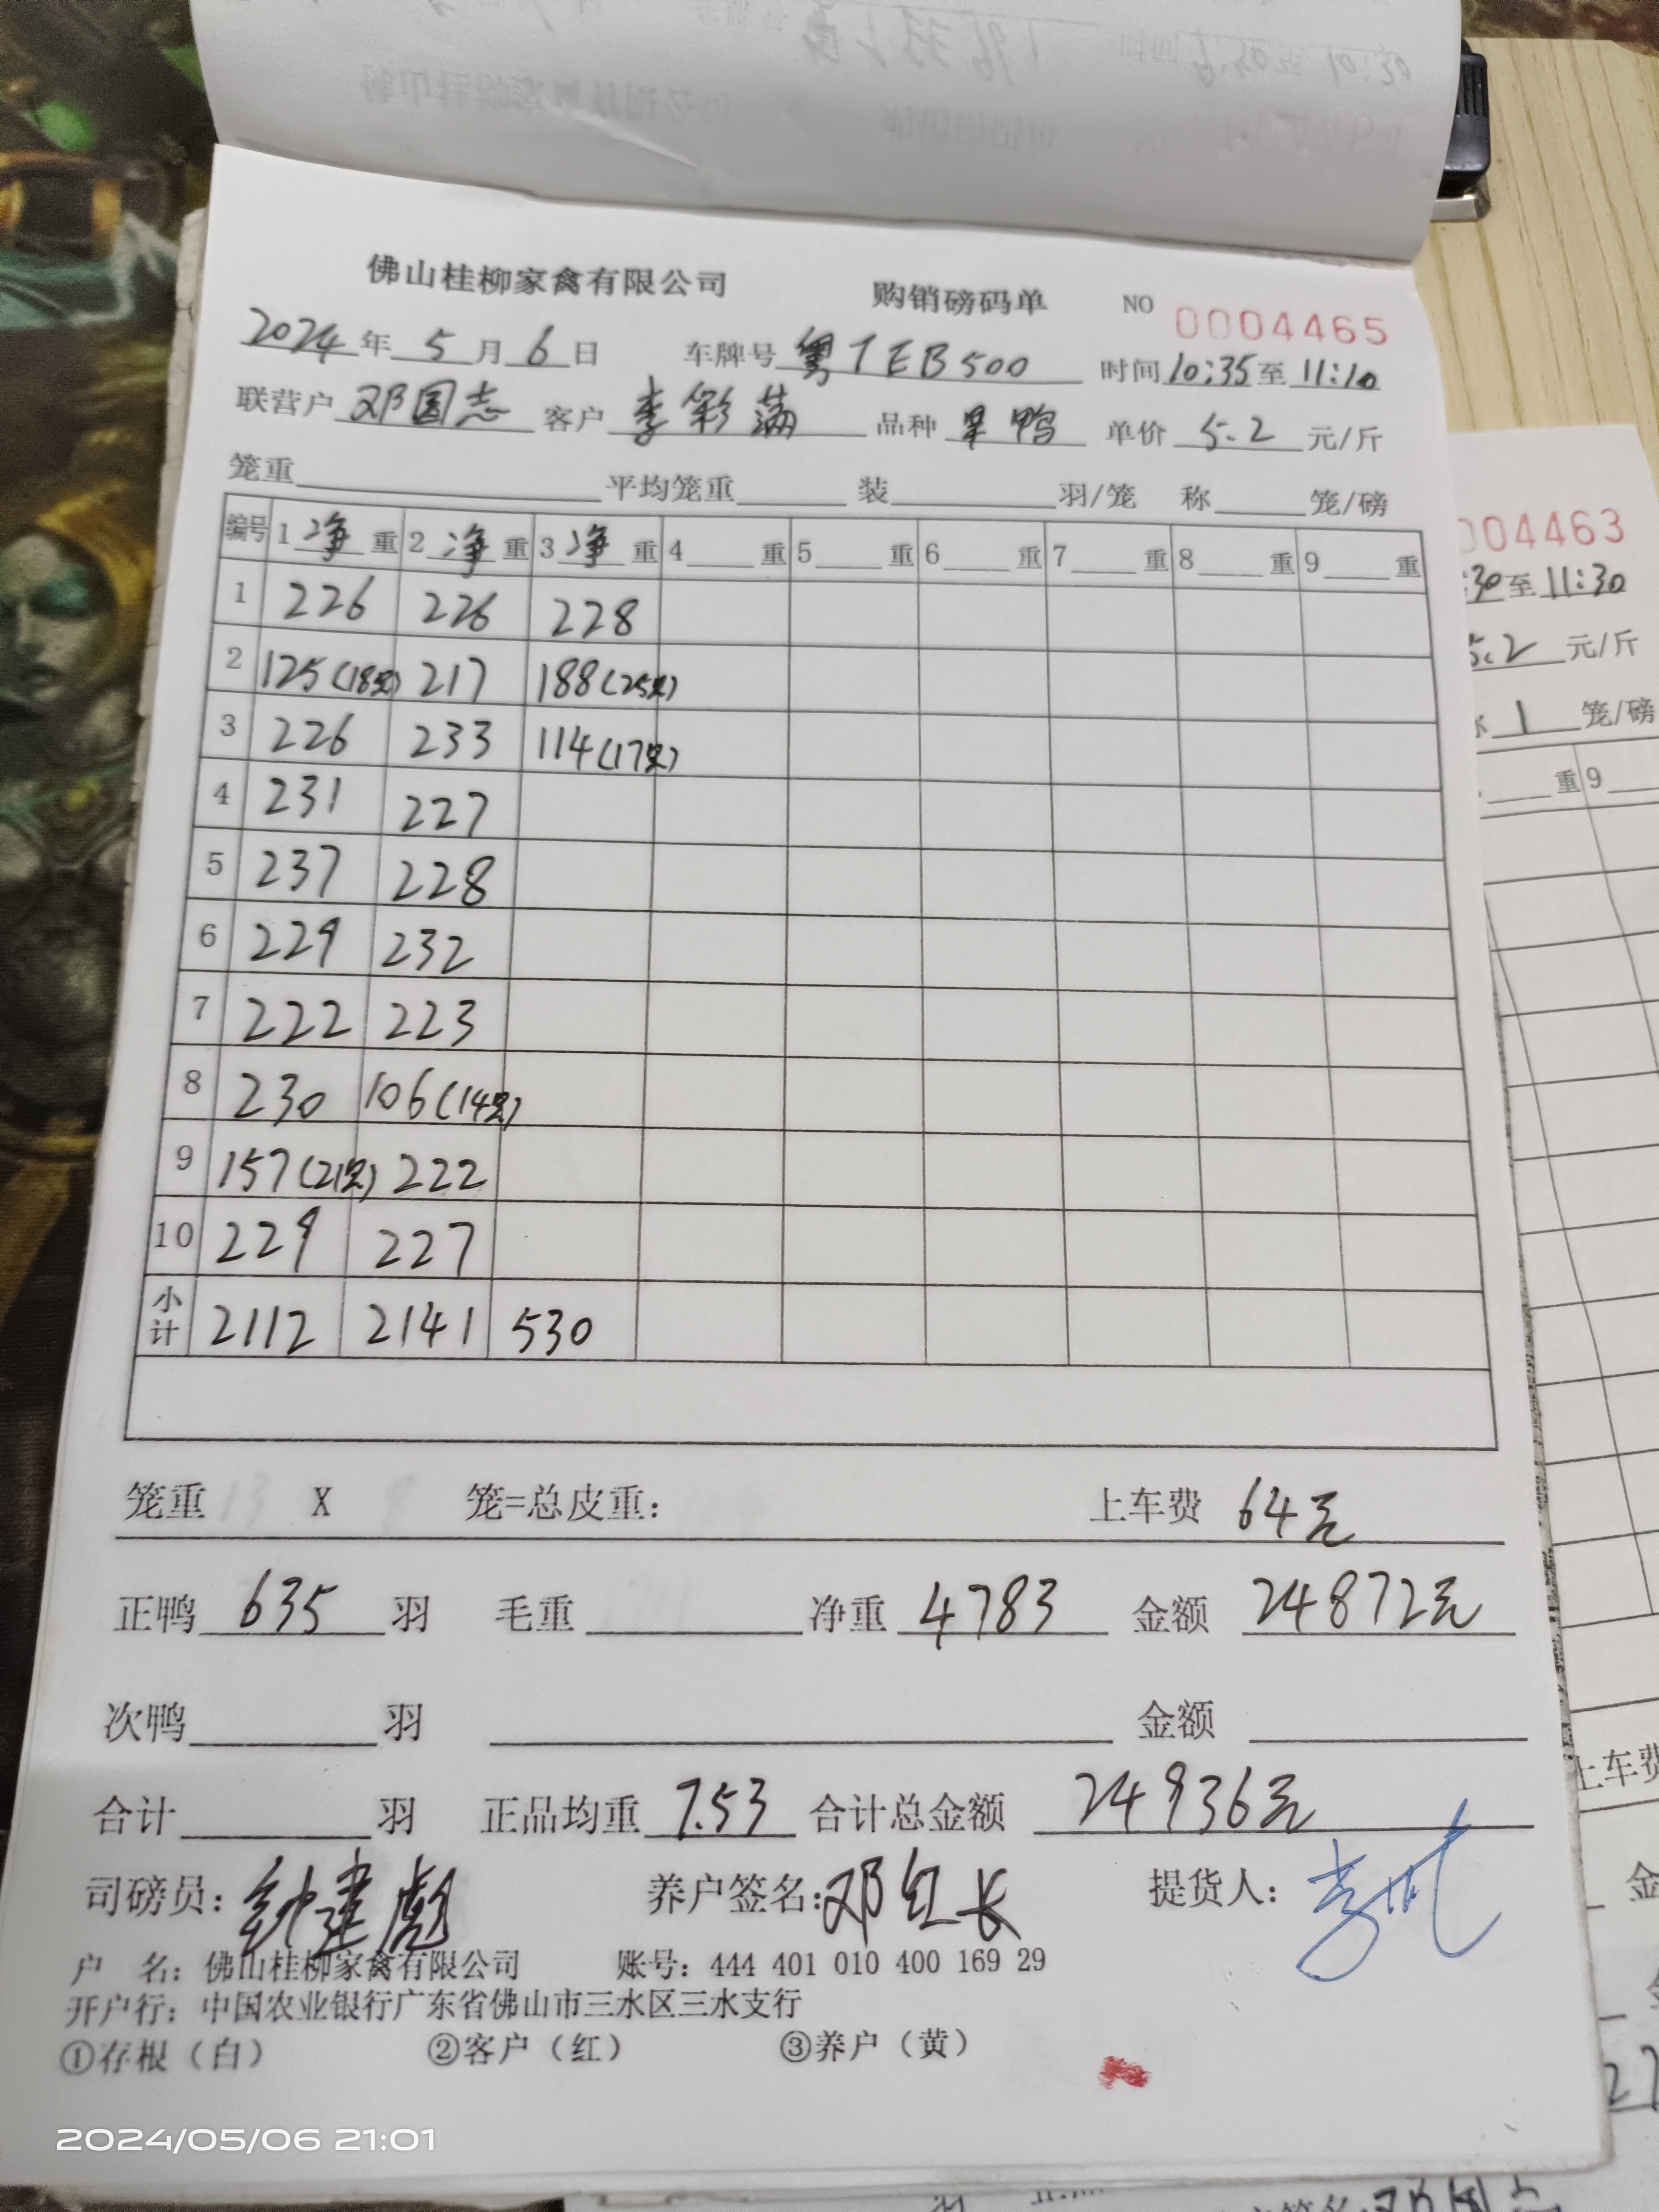 佛山桂柳家禽有限公司 购销磅码单 NO 0004465
2024年 5月 6日 车牌号 粤TEB500 时间 10:35至 11:10
联营户 邓国志 客户 李彩满 品种 果鸭 单价 5.2 元/斤
笼重 平均笼重 装 羽/笼 称 笼/磅
编号 1 净 重 2 净 重 3 净 重 4 重 5 重 6 重 7 重 8 重 9 重
1 226 226 228
2 125(18只) 217 188(25只)
3 226 233 114(17只)
4 231 227
5 237 228
6 229 232
7 222 223
8 230 106(14只)
9 157(21只) 222
10 229 227
小计 2112 2141 530
笼重 X 笼=总皮重: 上车费 64元
正鸭 635 羽 毛重 净重 4783 金额 24872元
次鸭 羽 金额
合计 羽 正品均重 7.53 合计总金额 24936元
司磅员: 钟建彪 养户签名: 邓红长 提货人:
户 名: 佛山桂柳家禽有限公司 账号: 444 401 010 400 169 29
开户行: 中国农业银行广东省佛山市三水区三水支行
①存根（白） ②客户（红） ③养户（黄）
2024/05/06 21:01
004463
:30至 11:30
5.2 元/斤
1 笼/磅
重 9
上车费